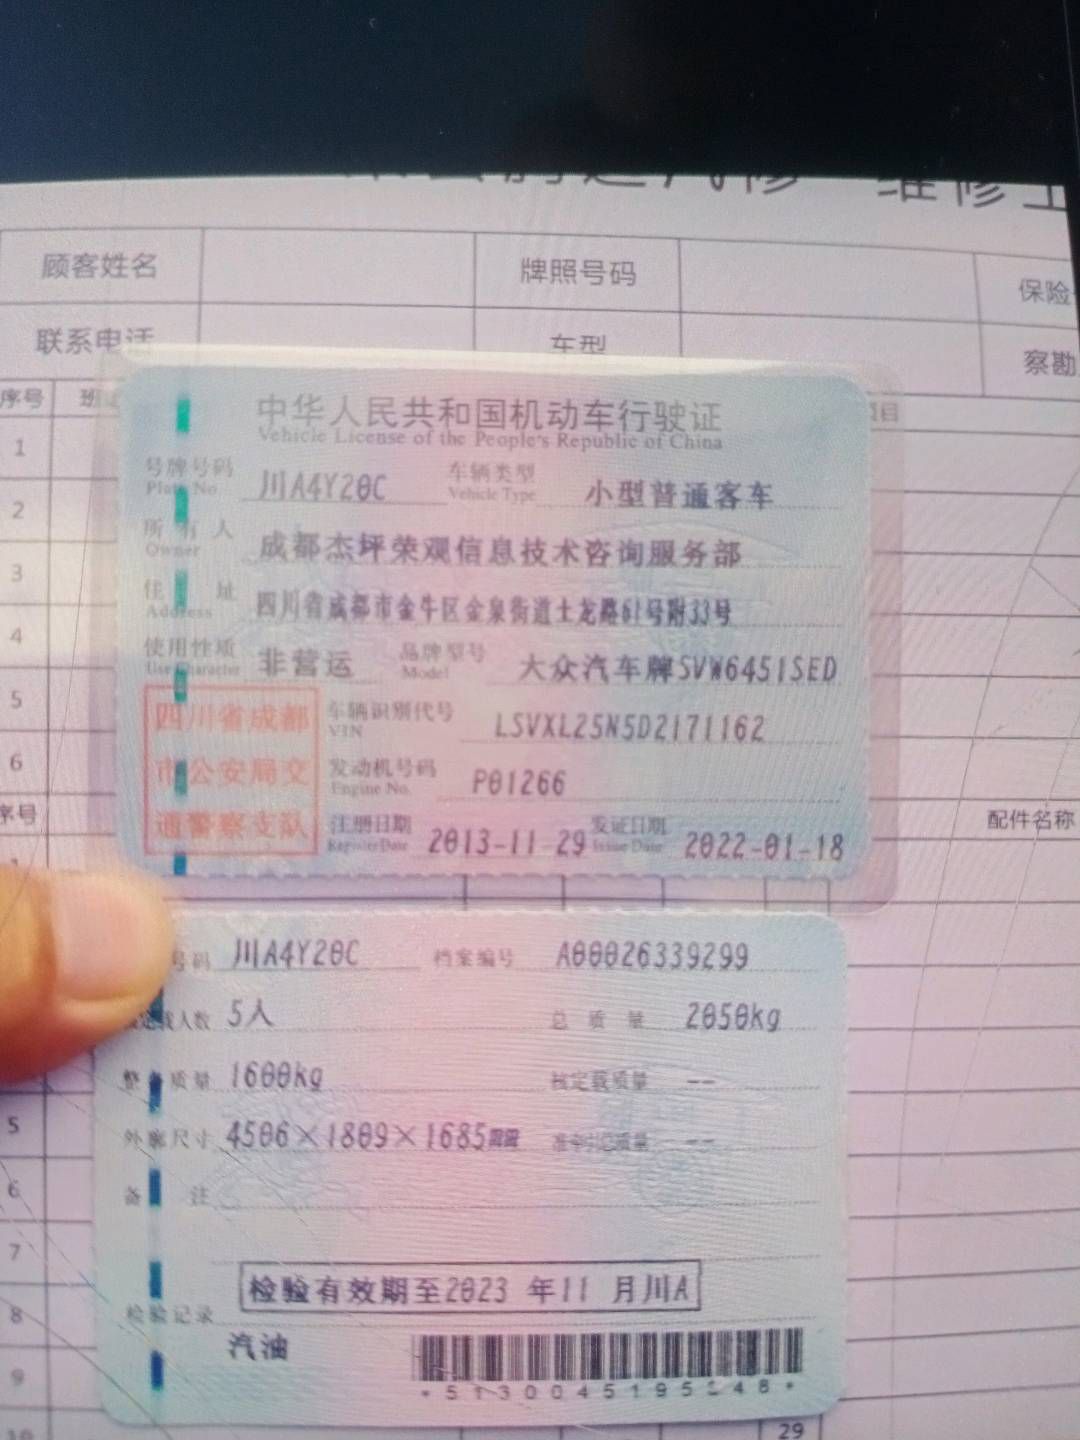 维修
顾客姓名 牌照号码 保险
联系电话 车型 察勘
序号
1
2
3
4
5
6
序号 配件名称
中华人民共和国机动车行驶证
Vehicle License of the People's Republic of China
号牌号码 川A4Y20C 车辆类型 小型普通客车
Plate No. Vehicle Type
所有人 成都杰坪荣观信息技术咨询服务部
Owner
住址 四川省成都市金牛区金泉街道土龙路61号附33号
Address
使用性质 非营运 品牌型号 大众汽车牌SVW6451SED
Use Character Model
四川省成都
市公安局交
通警察支队
车辆识别代号 LSVXL25N5D2171162
VIN
发动机号码 P01266
Engine No.
注册日期 2013-11-29 发证日期 2022-01-18
Register Date Issue Date
号码 川A4Y20C 档案编号 A00026339299
载人数 5人 总质量 2050kg
整备质量 1600kg 核定载质量 --
外廓尺寸 4506×1809×1685mm 准牵引总质量 --
备注
检验有效期至2023 年11 月川A
检验记录
汽油
5
6
7
8
9
10
29